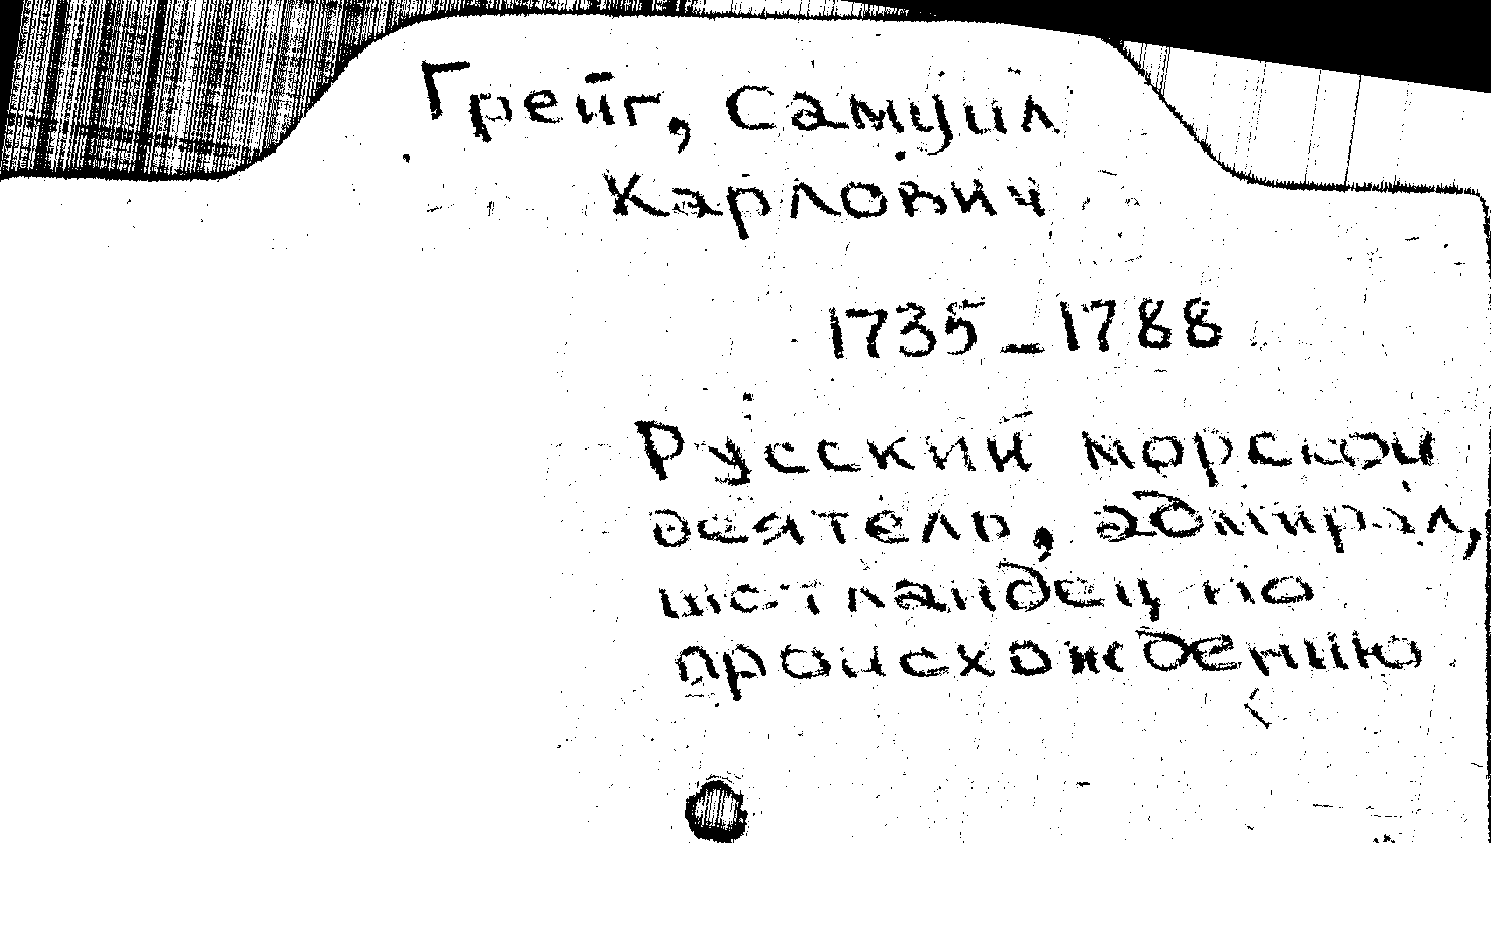 Грейг, Самуил
Карлович
1735-1788
Русский морской
деятель, адмирал,
шотландец по
происхождению